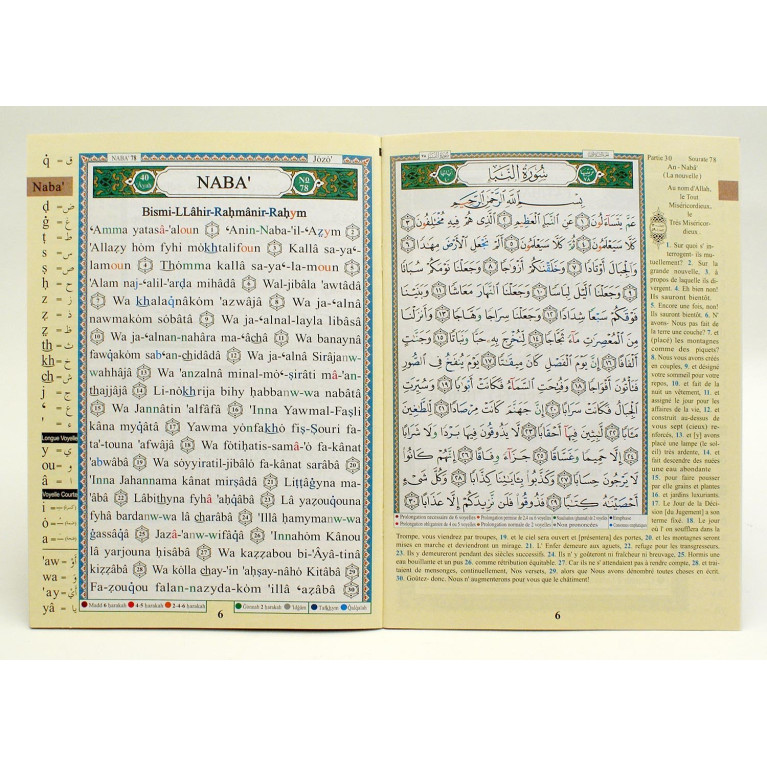 NABA' 78
Jòzò'
40
Ayah
NABA'
№
78
Bismi-LLâhir-Raḥmânir-Raḥym
ʿAmma yatasâ-'aloun 1 ʿAnin-Naba-'il-ʿAẓym 2
'Allaẓy hòm fyhi mòkhtalifoun 3 Kallâ sa-yaʿ-
lamoun 4 Thòmma kallâ sa-yaʿ-la-moun 5
'Alam naj-ʿalil-'arḍa mihâdâ 6 Wal-jibâla 'awtâdâ
7 Wa khalaqnâkòm 'azwâjâ 8 Wa ja-ʿalnâ
nawmakòm sòbâtâ 9 Wa ja-ʿalnal-layla libâsâ
10 Wa ja-ʿalnan-nahâra ma-ʿâchâ 11 Wa banaynâ
fawqakòm sabʿan-chidâdâ 12 Wa ja-ʿalnâ Sirâjanw-
wahhâjâ 13 Wa 'anzalnâ minal-mòʿ-ṣirâti mâ-'an-
thajjâjâ 14 Li-nòkhrija bihy ḥabbanw-wa nabâtâ
15 Wa Jannâtin 'alfâfâ 16 'Inna Yawmal-Faṣli
kâna myqâtâ 17 Yawma yònfakhò fiṣ-Ṣouri fa-
ta'-touna 'afwâjâ 18 Wa fòtiḥatis-samâ-'ò fa-kânat
'abwâbâ 19 Wa sòyyiratil-jibâlò fa-kânat sarâbâ 20
'Inna Jahannama kânat mirṣâdâ 21 Liṭṭâġyna ma-
'âbâ 22 Lâbithyna fyhâ 'aḥqâbâ 23 Lâ yaẓouqouna
fyhâ bardanw-wa lâ charâbâ 24 'Illâ ḥamymanw-wa
ġassâqâ 25 Jazâ-'anw-wifâqâ 26 'Innahòm Kânou
lâ yarjouna ḥisâbâ 27 Wa kaẓẓabou bi-'Âyâ-tinâ
kiẓẓâbâ 28 Wa kòlla chay-'in 'aḥṣay-nâhò Kitâbâ 29
Fa-ẓouqou falan-nazyda-kòm 'illâ ʿaẓâbâ 30
Madd 6 ḥarakah 4-5 ḥarakah 2-4-6 ḥarakah Ġonnah 2 ḥarakah 'Idġâm Tafkhym Qalqalah
6
q̇ = ق
Naba'
ḍ = ض
ġ = غ
ṭ = ط
ṣ = ص
ḥ = ح
z = ز
ẓ = ظ
th = ث
kh = خ
ch = ش
j = ج
ʿ = ع
' = ء
Longue Voyelle
y = ي
ou = و
â = ا
Voyelle Courte
i =
ò =
a =
'aw =
wa =
'ay =
yâ =
سُورَةُ النَّبَأ
بِسْمِ اللَّهِ الرَّحْمَٰنِ الرَّحِيمِ
عَمَّ يَتَسَاءَلُونَ ١ عَنِ النَّبَإِ الْعَظِيمِ ٢ الَّذِي هُمْ فِيهِ مُخْتَلِفُونَ ٣
كَلَّا سَيَعْلَمُونَ ٤ ثُمَّ كَلَّا سَيَعْلَمُونَ ٥ أَلَمْ نَجْعَلِ الْأَرْضَ مِهَادًا ٦
وَالْجِبَالَ أَوْتَادًا ٧ وَخَلَقْنَاكُمْ أَزْوَاجًا ٨ وَجَعَلْنَا نَوْمَكُمْ سُبَاتًا
٩ وَجَعَلْنَا اللَّيْلَ لِبَاسًا ١٠ وَجَعَلْنَا النَّهَارَ مَعَاشًا ١١ وَبَنَيْنَا
فَوْقَكُمْ سَبْعًا شِدَادًا ١٢ وَجَعَلْنَا سِرَاجًا وَهَّاجًا ١٣ وَأَنزَلْنَا
مِنَ الْمُعْصِرَاتِ مَاءً ثَجَّاجًا ١٤ لِّنُخْرِجَ بِهِ حَبًّا وَنَبَاتًا ١٥ وَجَنَّاتٍ
أَلْفَافًا ١٦ إِنَّ يَوْمَ الْفَصْلِ كَانَ مِيقَاتًا ١٧ يَوْمَ يُنفَخُ فِي الصُّورِ
فَتَأْتُونَ أَفْوَاجًا ١٨ وَفُتِحَتِ السَّمَاءُ فَكَانَتْ أَبْوَابًا ١٩ وَسُيِّرَتِ
الْجِبَالُ فَكَانَتْ سَرَابًا ٢٠ إِنَّ جَهَنَّمَ كَانَتْ مِرْصَادًا ٢١ لِّلطَّاغِينَ
مَآبًا ٢٢ لَّابِثِينَ فِيهَا أَحْقَابًا ٢٣ لَّا يَذُوقُونَ فِيهَا بَرْدًا وَلَا شَرَابًا
٢٤ إِلَّا حَمِيمًا وَغَسَّاقًا ٢٥ جَزَاءً وِفَاقًا ٢٦ إِنَّهُمْ كَانُوا
لَا يَرْجُونَ حِسَابًا ٢٧ وَكَذَّبُوا بِآيَاتِنَا كِذَّابًا ٢٨ وَكُلَّ شَيْءٍ
أَحْصَيْنَاهُ كِتَابًا ٢٩ فَذُوقُوا فَلَن نَّزِيدَكُمْ إِلَّا عَذَابًا ٣٠
Partie 30 Sourate 78
An - Nabâ'
(La nouvelle)
Au nom d'Allah,
le Tout
Miséricordieux,
le
Très Miséricor-
dieux.
1. Sur quoi s' in-
terrogent- ils mu-
tuellement? 2. Sur la
grande nouvelle, 3. à
propos de laquelle ils di-
vergent. 4. Eh bien non!
Ils sauront bientôt.
5. Encore une fois, non!
Ils sauront bientôt. 6. N'
avons- Nous pas fait de
la terre une couche? 7. et
(placé) les montagnes
comme des piquets?
8. Nous vous avons créés
en couples, 9. et désigné
votre sommeil pour votre
repos, 10. et fait de la
nuit un vêtement, 11. et
assigné le jour pour les
affaires de la vie, 12. et
construit au-dessus de
vous sept (cieux) ren-
forcés, 13. et [y] avons
placé une lampe (le so-
leil) très ardente, 14. et
fait descendre des nuées
une eau abondante
15. pour faire pousser
par elle grains et plantes
16. et jardins luxuriants.
17. Le Jour de la Déci-
sion [du Jugement] a son
terme fixé. 18. Le jour
où l' on soufflera dans la
Trompe, vous viendrez par troupes, 19. et le ciel sera ouvert et [présentera] des portes, 20. et les montagnes seront
mises en marche et deviendront un mirage. 21. L' Enfer demeure aux aguets, 22. refuge pour les transgresseurs.
23. Ils y demeureront pendant des siècles successifs. 24. Ils n' y goûteront ni fraîcheur ni breuvage, 25. Hormis une
eau bouillante et un pus 26. comme rétribution équitable. 27. Car ils ne s' attendaient pas à rendre compte, 28. et trai-
taient de mensonges, continuellement, Nos versets, 29. alors que Nous avons dénombré toutes choses en écrit.
30. Goûtez- donc. Nous n'augmenterons pour vous que le châtiment!
6